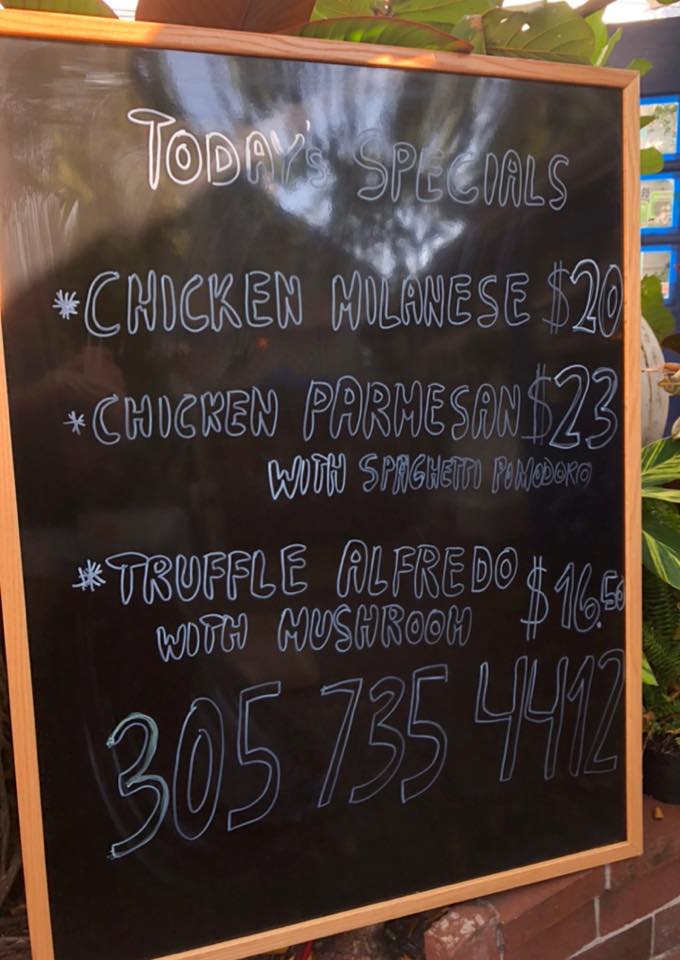 TODAY'S SPECIALS
*CHICKEN MILANESE $20
*CHICKEN PARMESAN $23
WITH SPAGHETTI POMODORO
*TRUFFLE ALFREDO $16.50
WITH MUSHROOM
305 735 4412